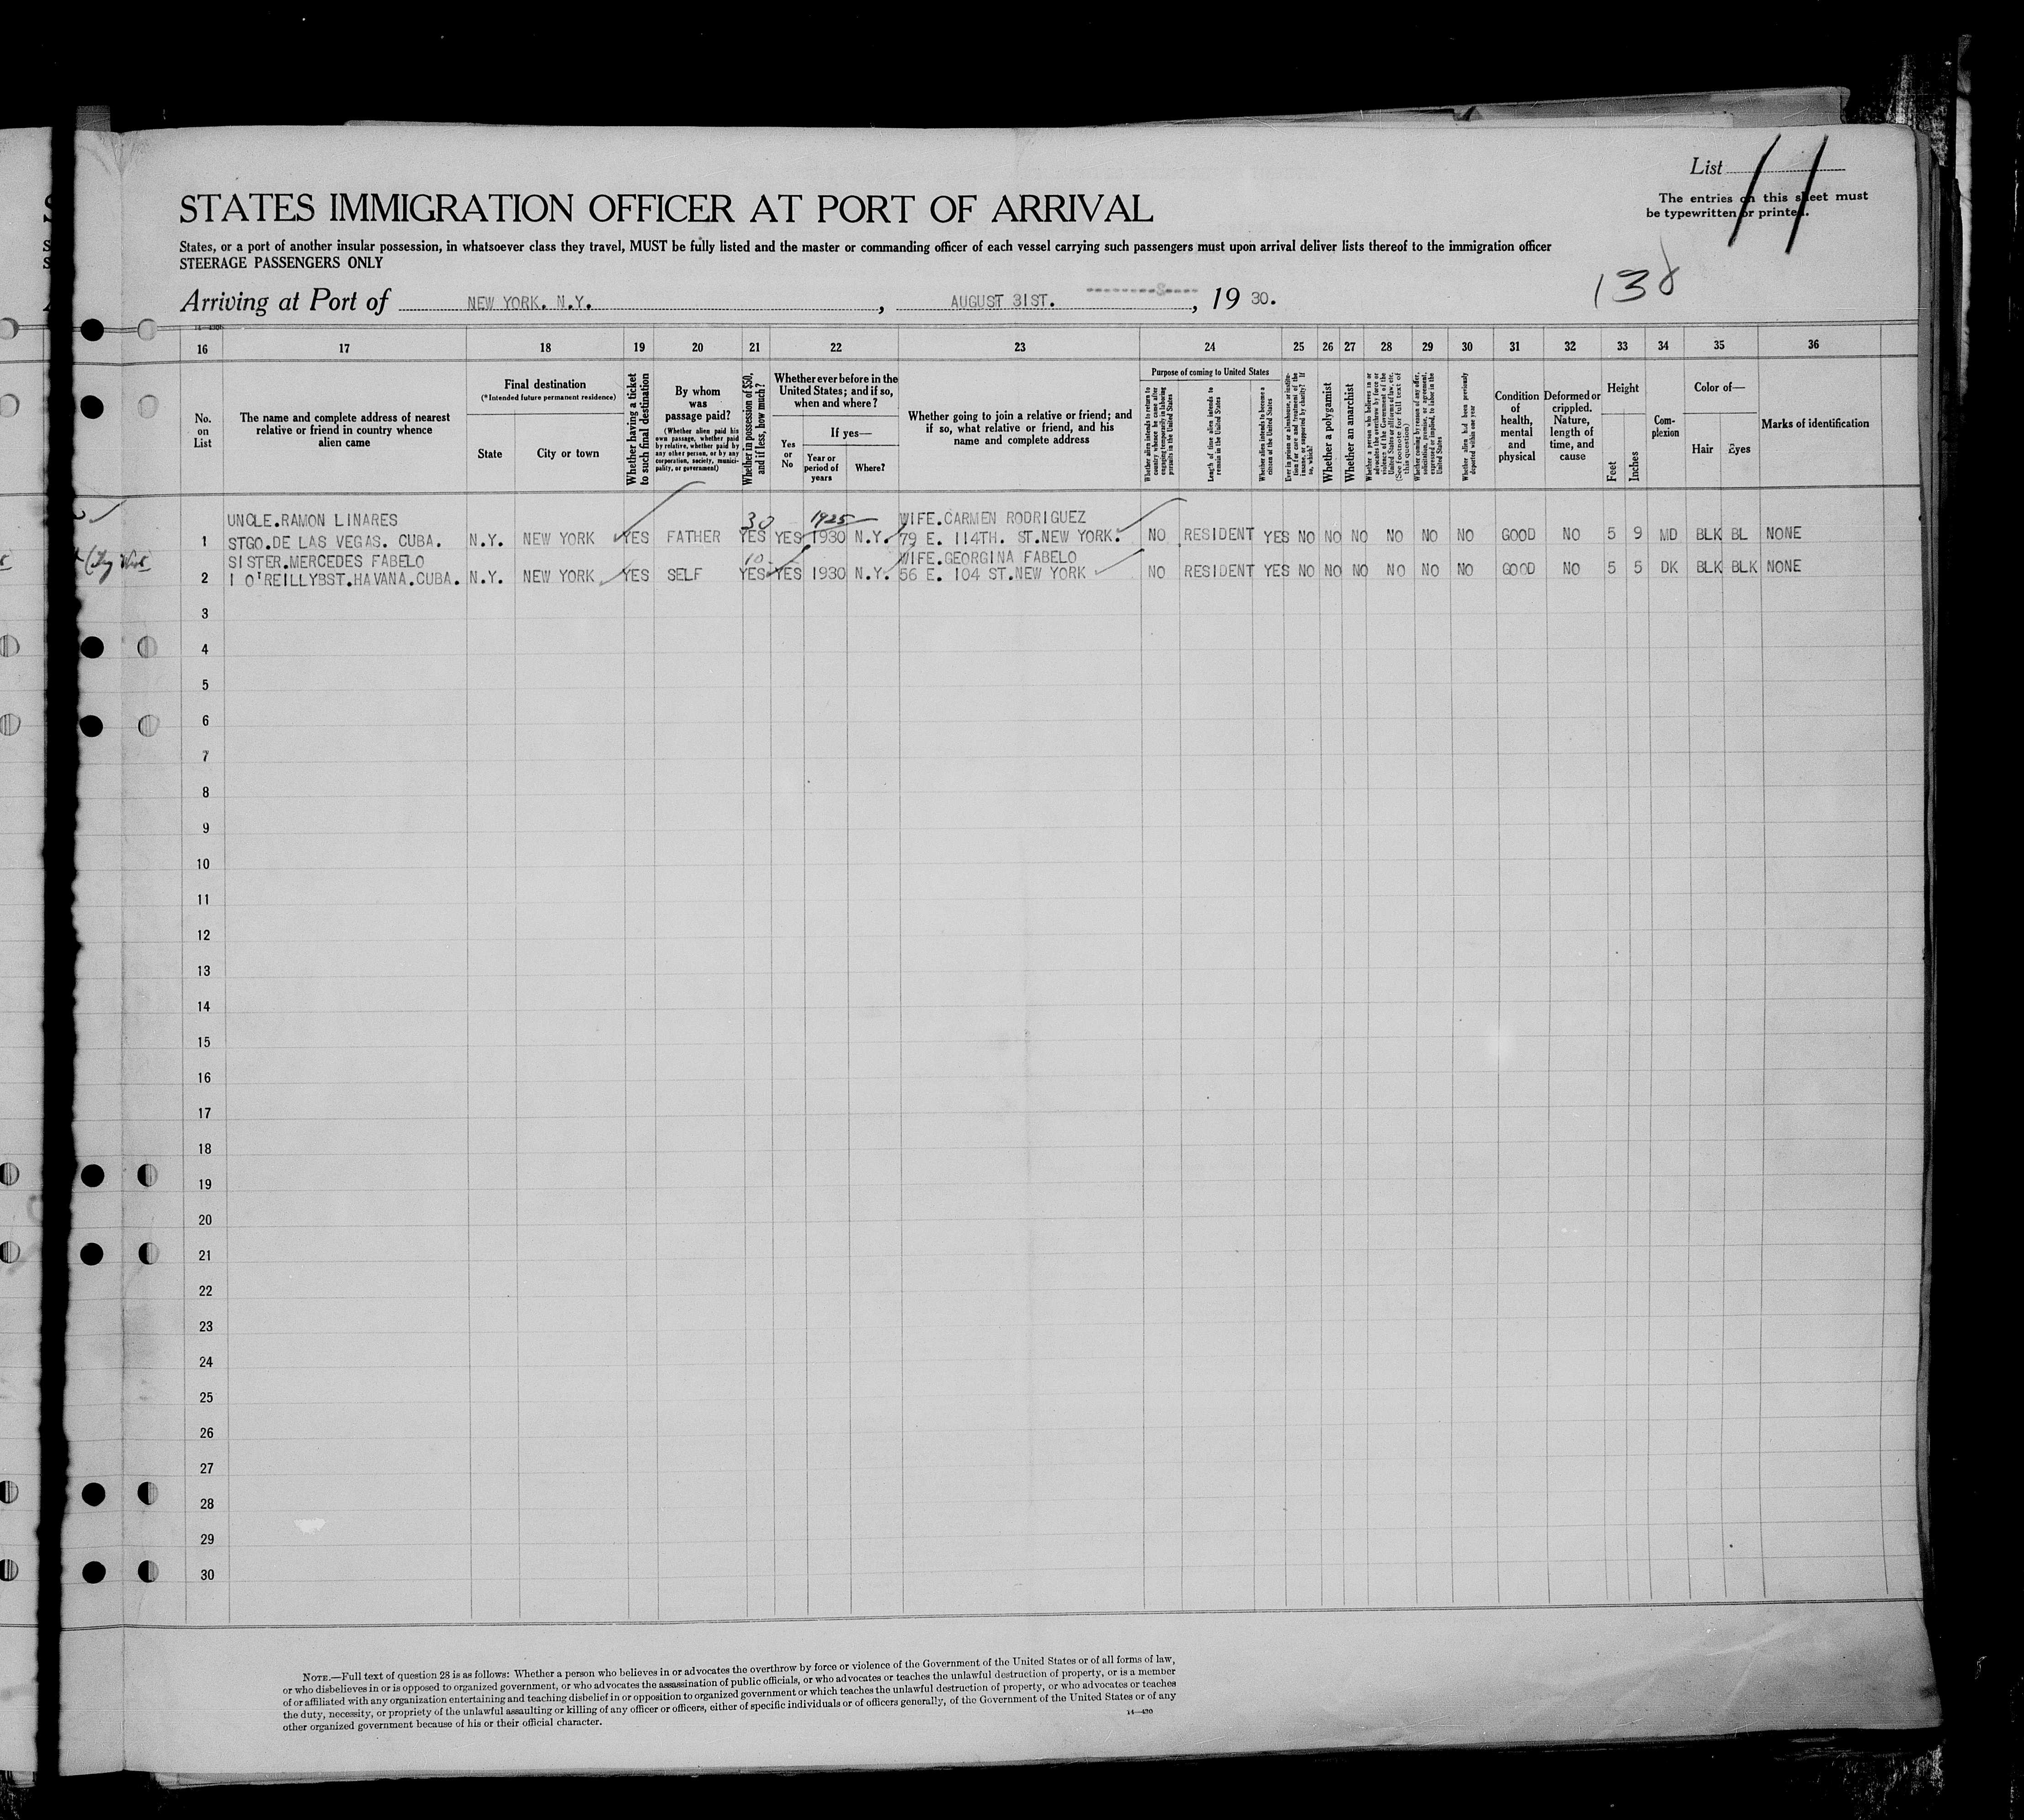 List 11
The entries on this sheet must
be typewritten or printed.
STATES IMMIGRATION OFFICER AT PORT OF ARRIVAL
States, or a port of another insular possession, in whatsoever class they travel, MUST be fully listed and the master or commanding officer of each vessel carrying such passengers must upon arrival deliver lists thereof to the immigration officer
STEERAGE PASSENGERS ONLY
138
Arriving at Port of NEW YORK. N.Y. , AUGUST 31ST. , 19 30.
16 17 18 19 20 21 22 23 24 25 26 27 28 29 30 31 32 33 34 35 36
No.
on
List
The name and complete address of nearest
relative or friend in country whence
alien came
Final destination
(*Intended future permanent residence)
State
City or town
Whether having a ticket
to such final destination
By whom
was
passage paid?
(Whether alien paid his
own passage, whether paid
by relative, whether paid by
any other person, or by any
corporation, society, munici-
pality, or government)
Whether in possession of $50,
and if less, how much?
Whether ever before in the
United States; and if so,
when and where?
Yes
or
No
If yes—
Year or
period of
years
Where?
Whether going to join a relative or friend; and
if so, what relative or friend, and his
name and complete address
Purpose of coming to United States
Whether alien intends to return to
country whence he came after
engaging temporarily in laboring
pursuits in the United States
Length of time alien intends to
remain in the United States
Whether alien intends to become a
citizen of the United States
Ever in prison or almshouse, or institu-
tion for care and treatment of the
insane, or supported by charity? If
so, which?
Whether a polygamist
Whether an anarchist
Whether a person who believes in or
advocates the overthrow by force or
violence of the Government of the
United States or all forms of law, etc.
(See footnote for full text of
this question)
Whether coming by reason of any offer,
solicitation, promise, or agreement,
expressed or implied, to labor in the
United States
Whether alien had been previously
deported within one year
Condition
of
health,
mental
and
physical
Deformed or
crippled.
Nature,
length of
time, and
cause
Height
Feet
Inches
Com-
plexion
Color of—
Hair
Eyes
Marks of identification
UNCLE.RAMON LINARES 30 1925 WIFE.CARMEN RODRIGUEZ
1 STGO.DE LAS VEGAS. CUBA. N.Y. NEW YORK YES FATHER YES YES 1930 N.Y. 79 E. 114TH. ST.NEW YORK. NO RESIDENT YES NO NO NO NO NO NO GOOD NO 5 9 MD BLK BL NONE
SISTER.MERCEDES FABELO 10 WIFE.GEORGINA FABELO
2 1 O'REILLYBST.HAVANA.CUBA. N.Y. NEW YORK YES SELF YES YES 1930 N.Y. 56 E. 104 ST.NEW YORK NO RESIDENT YES NO NO NO NO NO NO GOOD NO 5 5 DK BLK BLK NONE
3
4
5
6
7
8
9
10
11
12
13
14
15
16
17
18
19
20
21
22
23
24
25
26
27
28
29
30
NOTE.—Full text of question 28 is as follows: Whether a person who believes in or advocates the overthrow by force or violence of the Government of the United States or of all forms of law,
or who disbelieves in or is opposed to organized government, or who advocates the assassination of public officials, or who advocates or teaches the unlawful destruction of property, or is a member
of or affiliated with any organization entertaining and teaching disbelief in or opposition to organized government or which teaches the unlawful destruction of property, or who advocates or teaches
the duty, necessity, or propriety of the unlawful assaulting or killing of any officer or officers, either of specific individuals or of officers generally, of the Government of the United States or of any
other organized government because of his or their official character.
14—430